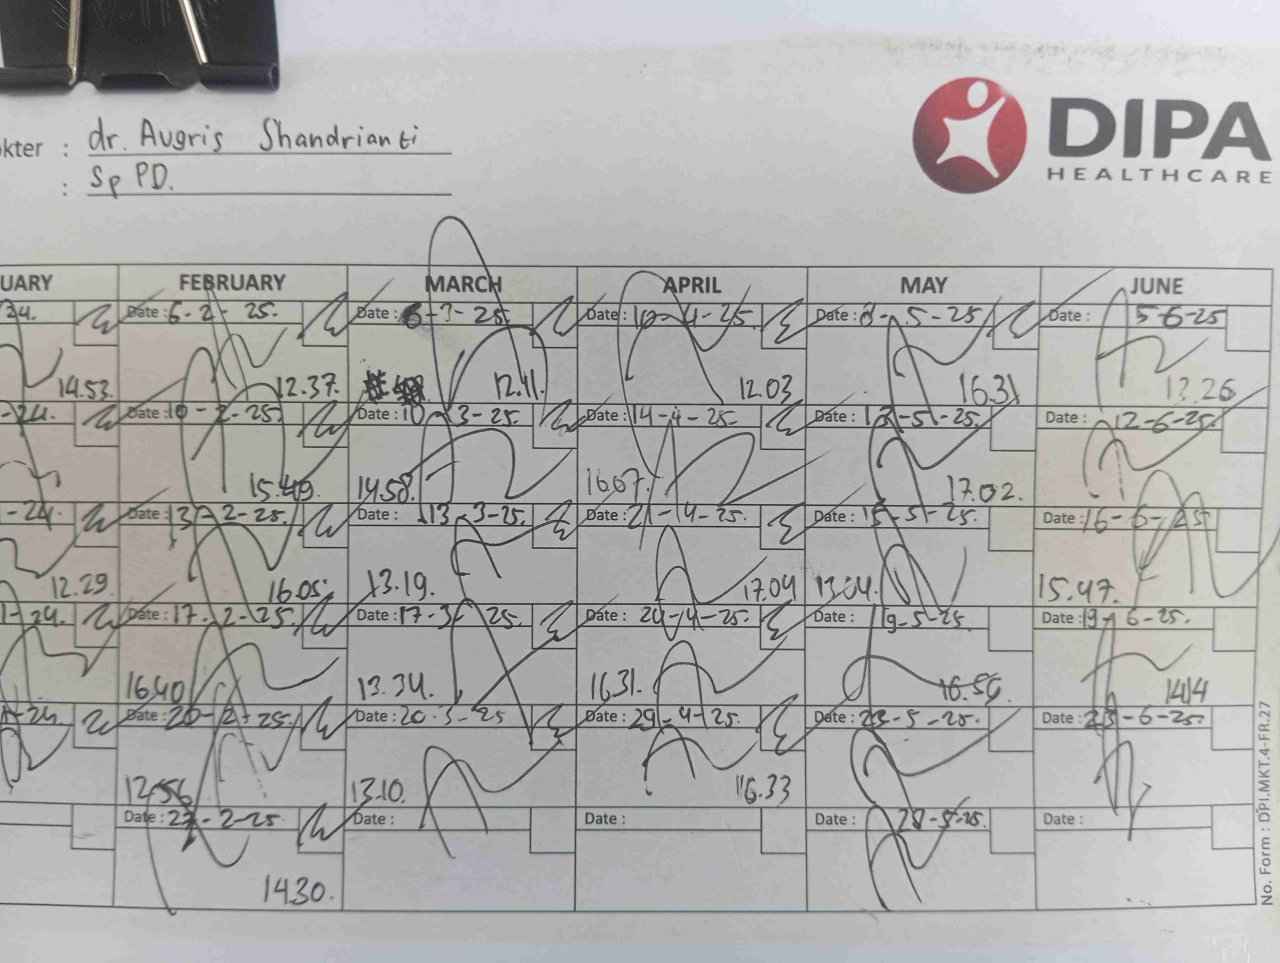 DIPA
HEALTHCARE
kter : dr. Augris Shandrianti
: Sp PD.
UARY FEBRUARY MARCH APRIL MAY JUNE
24. Date : 6-2-25. Date : 6-3-25. Date : 10-4-25 Date : 8-5-25 Date : 5-6-25
14.53. 12.37. 12.41. 12.03 16.31 13.26
-24. Date : 10-2-25. Date : 10-3-25. Date : 14-4-25. Date : 13-5-25. Date : 12-6-25.
15.49. 14.58. 16.07. 17.02.
-24. Date : 13-2-25. Date : 13-3-25. Date : 21-4-25. Date : 15-5-25. Date : 16-6-25
12.29. 16.05. 13.19. 17.04 13.04. 15.47.
-24. Date : 17-2-25. Date : 17-3-25. Date : 24-4-25. Date : 19-5-25. Date : 19-6-25.
16.40 13.34. 16.31. 16.56. 1414
-24 Date : 20-2-25. Date : 20-3-25 Date : 29-4-25. Date : 23-5-25. Date : 23-6-25.
12.56 13.10. 16.33
Date : 27-2-25. Date : Date : Date : 28-5-25. Date :
14.30.
No. Form : DPI.MKT.4-FR.27